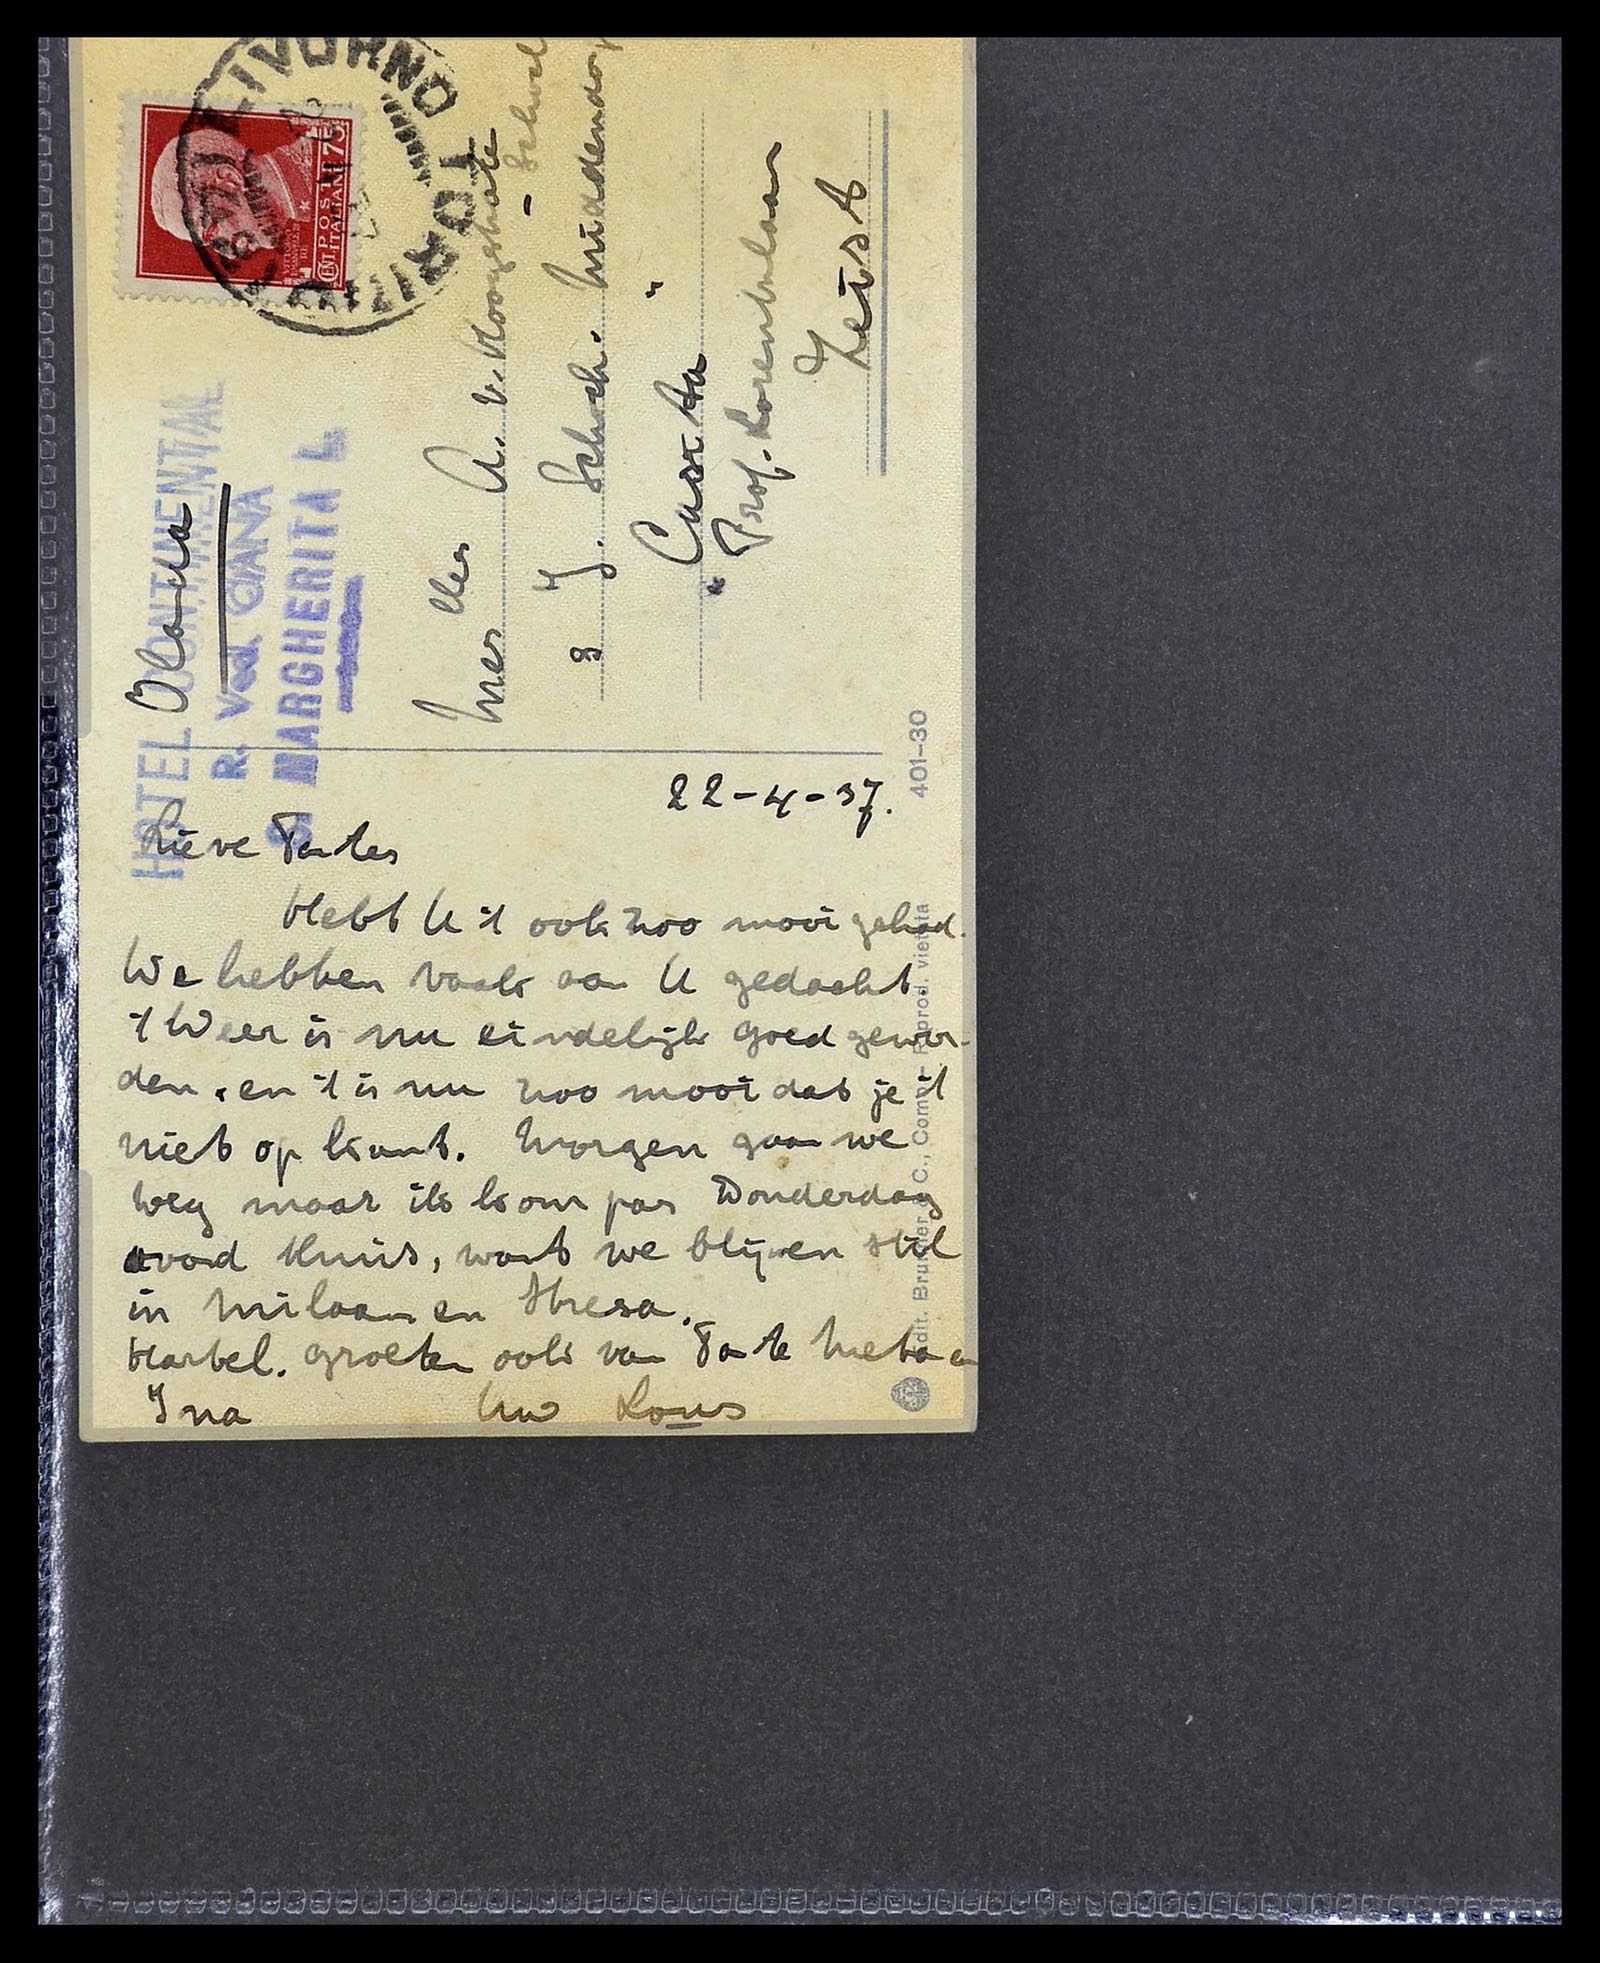 LIVORNO
POSTE ITALIANE
CENT. 75
HOTEL CONTINENTAL
R. Ved. CIANA
S. MARGHERITA L.
Olanda
Mes dlles A. v. Hoogstrate
& J. Schoch. Middendorp
Casita
Prof. Lorentzlaan
Zeist
401-30
22-4-37.
Lieve Tantes
Hebt U 't ook zoo mooi gehad.
We hebben vaak aan U gedacht
't Weer is nu eindelijk goed gewor-
den. en 't is nu zoo mooi dat je 't
niet op kant. Morgen gaan we
weg maar ik kom pas Donderdag
avond thuis, want we blijven stil
in Milaan en Stresa.
Hartel. groeten ook van Tante Meta en
Ina Uw Lous
Edit. Brunner & C., Como - Reprod. vietata